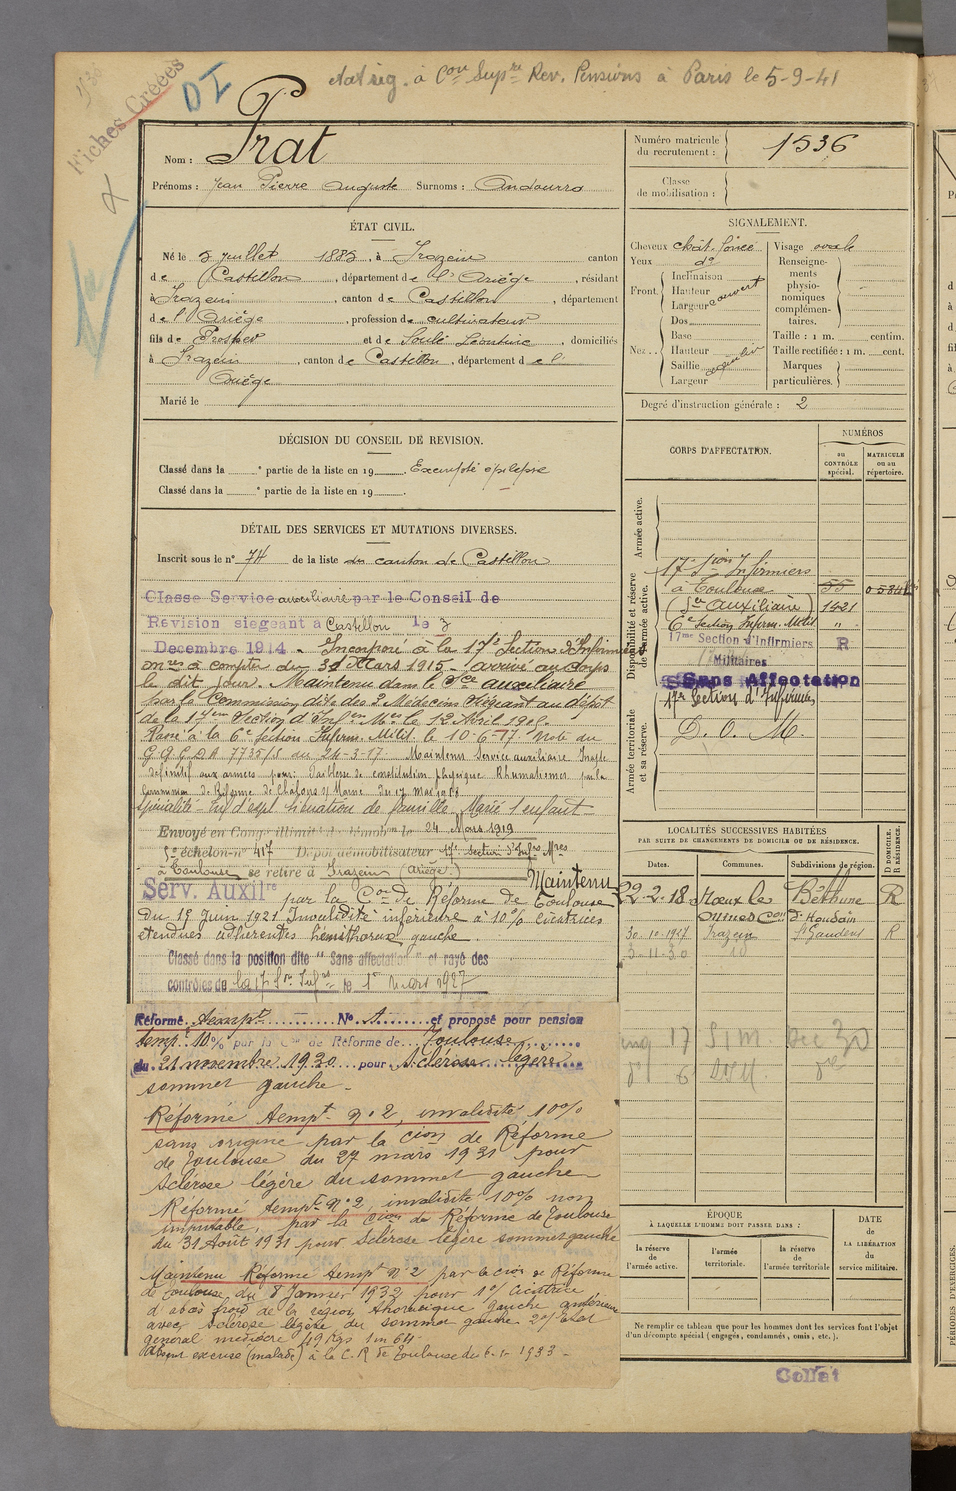 Fiches Créées
D I
état sig. à Con Supre Rev. Pensions à Paris le 5-9-41
Nom : Prat
Prénoms : Jean Pierre Auguste Surnoms : Andourro
Numéro matricule du recrutement : 1536
Classe de mobilisation :
ÉTAT CIVIL.
Né le 5 juillet 1882, à Irazein canton
de Castillon, département de l'Ariège, résidant
à Irazein, canton de Castillon, département
de l'Ariège, profession de cultivateur
fils de Prosper et de Soulé Léontine, domiciliés
à Irazein, canton de Castillon, département de l'
Ariège
Marié le
SIGNALEMENT.
Cheveux chât. foncé
Yeux do
Front. Inclinaison
Hauteur
Largeur couvert
Nez.. Dos
Base
Hauteur
Saillie
Largeur
Visage ovale
Renseignements physionomiques complémentaires.
Taille : 1 m. centim.
Taille rectifiée : 1 m. cent.
Marques particulières.
Degré d'instruction générale : 2
DÉCISION DU CONSEIL DE REVISION.
Classé dans la e partie de la liste en 19 . Exempté épilepsie
Classé dans la e partie de la liste en 19 .
DÉTAIL DES SERVICES ET MUTATIONS DIVERSES.
Inscrit sous le n° 74 de la liste du canton de Castillon
Classe Service auxiliaire par le Conseil de
Révision siégeant à Castillon le 3
Decembre 1914 - Incorporé à la 17e Section d'Infirmiers
mres à compter du 31 Mars 1915 - arrivé au Corps
le dit jour. Maintenu dans le Sce auxiliaire
par la Commission dite des 3 Médecins siégeant au dépôt
de la 17em Section d'Infen Mres le 12 Avril 191
Passé à la 6e Section Inferm. Milit. le 10-6-17. Note du
G.Q.G. D.A 7735/S du 24-3-17. Maintenu Service auxiliaire Inapte
définitif aux armées pour: Faiblesse de constitution physique Rhumatismes par la
Commission de Réforme de Chalons s/ Marne du 17 Mai 1918
Spécialité - situation de famille Marié 1 enfant
Envoyé en Congé illimité de démobon le 24 Mars 1919
5e échelon n° 417 Dépôt démobilisateur 17e Section d'Infres Mres
à Toulouse se retire à Irazein (Ariège)
Maintenu
Serv. Auxilre par la Con de Réforme de Toulouse
du 15 Juin 1921 Invalidité inférieure à 10% cicatrices
étendues adhérentes hémithorax gauche.
Classé dans la position dite "Sans affectation" et rayé des
contrôles de la 17 Son Infres le 1er Mars 1927
Réformé tempt N° 1 et proposé pour pension
tempe 10% par la Con de Réforme de Toulouse
du 21 novembre 1930 pour sclérose légère
sommet gauche -
Réformé tempt n° 2, invalidité 10%
sans origine par la Cion de Réforme
de Toulouse du 27 mars 1931 pour
sclérose légère du sommet gauche
Réformé tempt n° 2 invalidité 10% non
imputable, par la Cion de Réforme de Toulouse
du 31 Août 1931 pour sclérose légère sommet gauche
Maintenu Réformé tempt n° 2 par la Cion de Réforme
de Toulouse du 8 Janvier 1932 pour 1°/ cicatrice
d'abcès froid de la région thoracique gauche antérieure
avec sclérose légère du sommet gauche. 2°/ Etat
général médiocre 49 kgs 1m 64.
Absent excusé (malade) à la C. R de Toulouse du 6-1-1933 -
CORPS D'AFFECTATION.
NUMÉROS
au CONTRÔLE spécial.
MATRICULE ou au répertoire.
Armée active.
Disponibilité et réserve de l'armée active.
Armée territoriale et sa réserve.
17e Sion Infirmiers
à Toulouse 55
(Sce Auxiliaire) 1421
6e Section Infirm. Milit "
17me Section d'Infirmiers R
Militaires
Sans Affectation
17e Section d'Infirmiers
D. O. M.
LOCALITÉS SUCCESSIVES HABITÉES
PAR SUITE DE CHANGEMENTS DE DOMICILE OU DE RÉSIDENCE.
Dates. Communes. Subdivisions de région. D DOMICILE. R RÉSIDENCE.
22-2-18 Nœux les Béthune R
Mines Con d'Houdain
30-10-1927 Irazein St Gaudens R
3-11-30 id
17 SIM Dec 30
ÉPOQUE
À LAQUELLE L'HOMME DOIT PASSER DANS :
la réserve de l'armée active.
l'armée territoriale.
la réserve de l'armée territoriale
DATE de LA LIBÉRATION du service militaire.
Ne remplir ce tableau que pour les hommes dont les services font l'objet
d'un décompte spécial (engagés, condamnés, omis, etc.).
Collat
PÉRIODES D'EXERCICES.